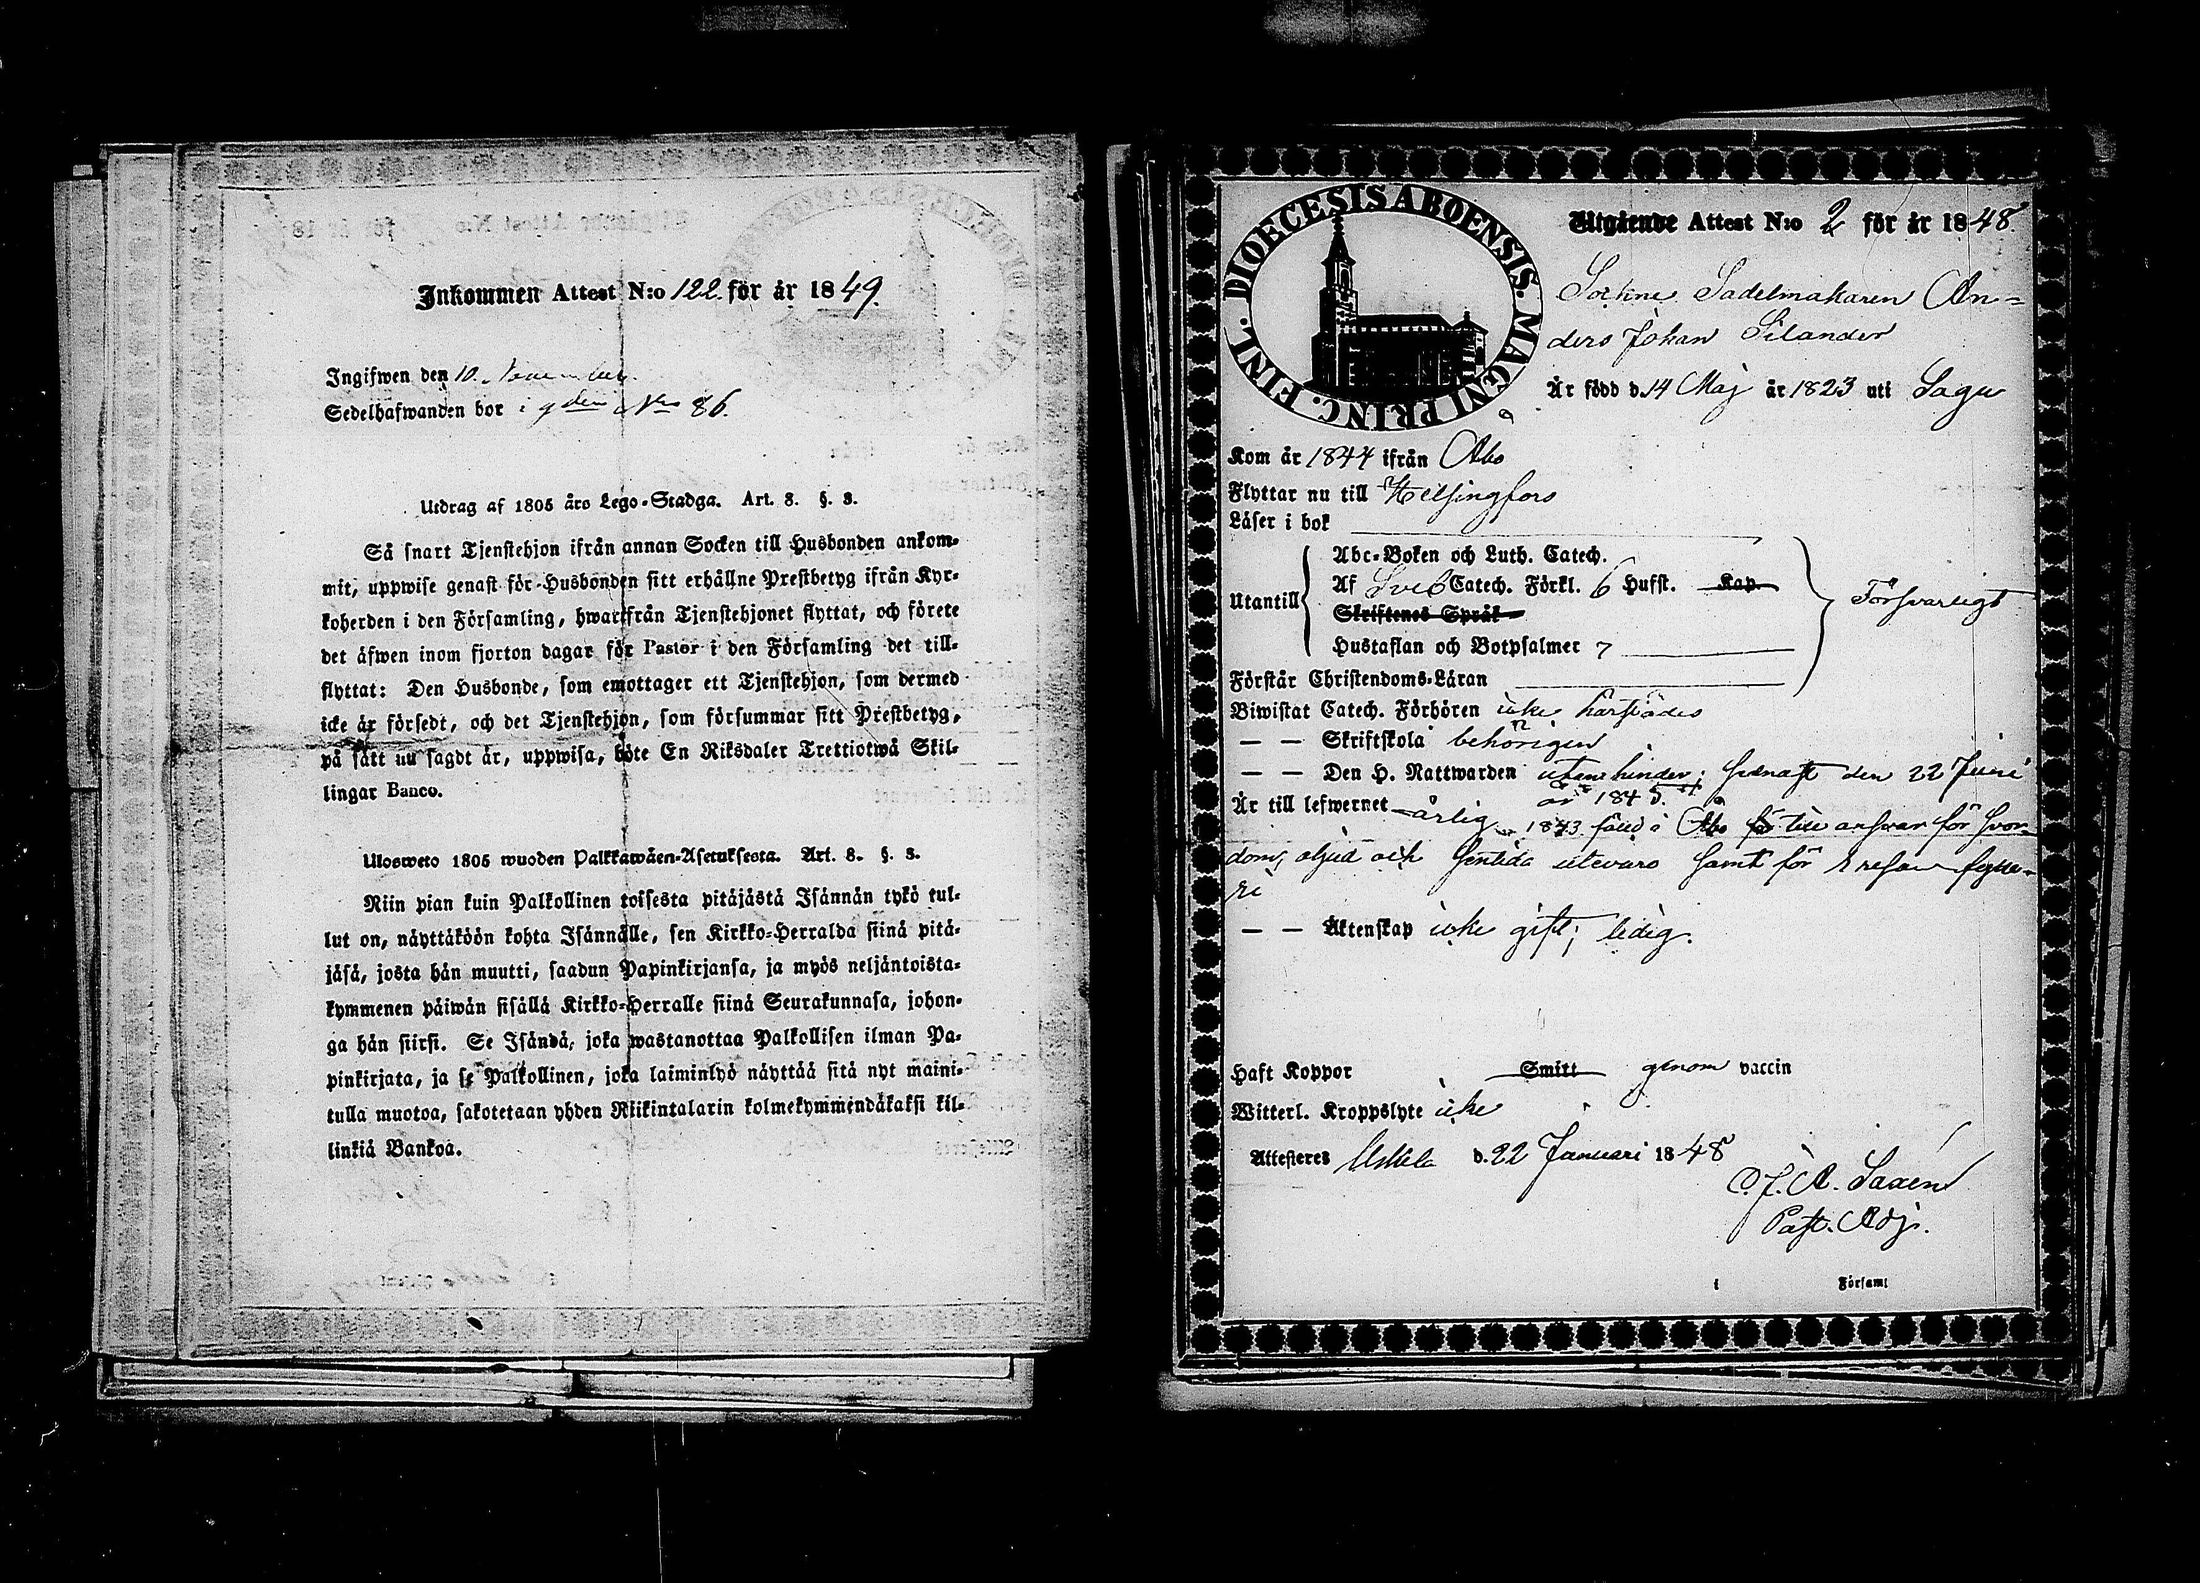 Inkommen Attest N:o 122. för år 1849.
Ingifwen den 10. November.
Sedelhafwanden bor i qden No 86.
Utdrag af 1805 års Lego-Stadga. Art. 8. §. 3.
Så snart Tjenstehjon ifrån annan Socken till Husbonden ankom-
mit, uppwise genast för Husbonden sitt erhållne Prestbetyg ifrån Kyr-
koherden i den Församling, hwartfrån Tjenstehjonet flyttat, och förete
det äfwen inom fjorton dagar för Pastor i den Församling det till-
flyttat: Den Husbonde, som emottager ett Tjenstehjon, som dermed
icke är försedt, och det Tjenstehjon, som försummar sitt Prestbetyg,
på sätt nu sagdt är, uppwisa, böte En Riksdaler Trettiotwå Skil-
lingar Banco.
Ulosweto 1805 wuoden Palkkawäen-Asetuksesta. Art. 8. §. 3.
Niin pian kuin Palkollinen toisesta pitäjästä Isännän tykö tul-
lut on, näyttäköön kohta Isännälle, sen Kirkko-Herralda siinä pitä-
jäsä, josta hän muutti, saadun Papinkirjansa, ja myös neljäntoista-
kymmenen päiwän sisällä Kirkko-Herralle siinä Seurakunnasa, johon-
ga hän siirsi. Se Isändä, joka wastanottaa Palkollisen ilman Pa-
pinkirjata, ja se Palkollinen, joka laiminlyö näyttää sitä nyt maini-
tulla muotoa, sakotetaan yhden Riikintalarin kolmekymmendäkaksi kil-
linkiä Bankoa.
DIOECESIS ABOENSIS. MAGNI PRINC. FINL.
Utgående Attest N:o 2 för år 1848
Sockne Sadelmakaren An=
ders Johan Silander
Är född d. 14 Maj år 1823 uti Sagu
Kom år 1844 ifrån Åbo
Flyttar nu till Helsingfors
Läser i bok
Abc-Boken och Luth. Catech.
Af Sveb Catech. Förkl. 6 Hufst. Kap
Utantill
Skriftenes Språk
Försvarligt
Hustaflan och Botpsalmer 7
Förstår Christendoms-Läran
Biwistat Catech. Förhören icke härstädes
— — Skriftskola behörigen
— — Den H. Nattwarden utan hinder; sednast den 22 Juni
år 1845.
Är till lefwernet ärlig 1843 fäld i Åbo till answar för svor-
dom, oljud och sentida utevaro samt för 1 resan fylle-
ri
— — Äktenskap icke gift; ledig.
Haft Koppor Smitt genom vaccin
Witterl. Kroppslyte icke
Attesteres Uskela d. 22 Januari 1848
C. J. A. Saxén
Past. Adj.
i Församl